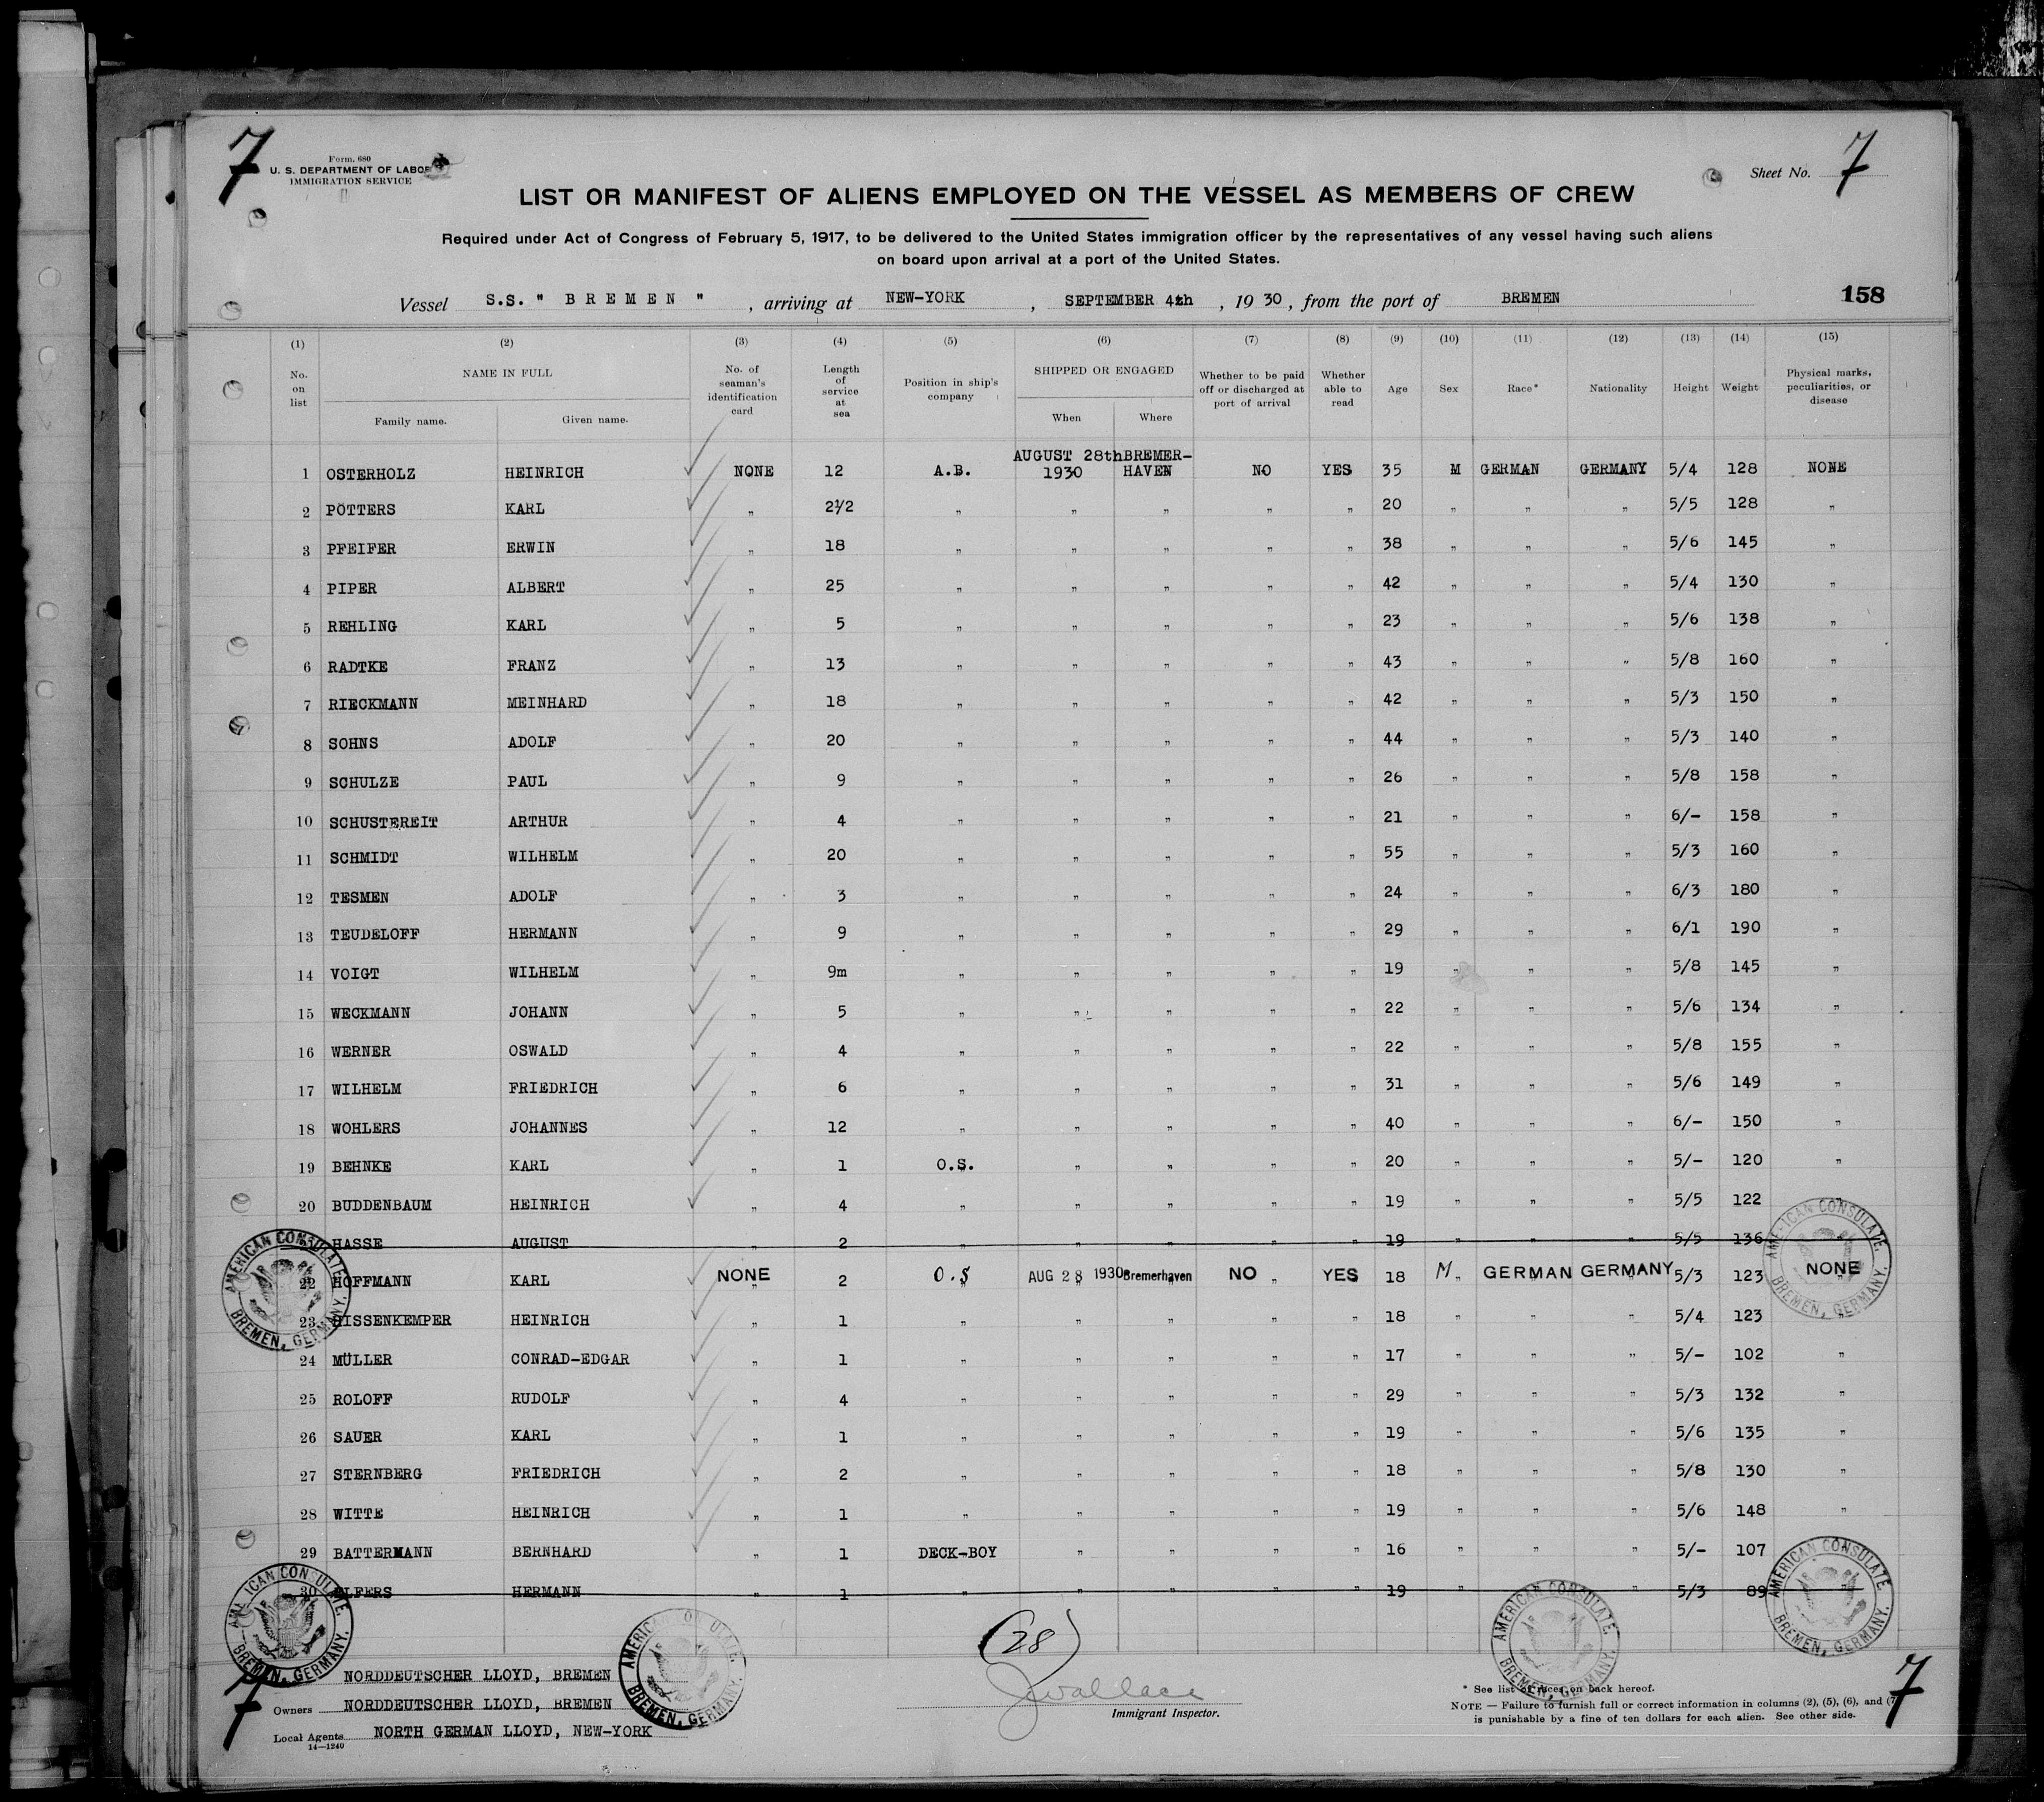 7
Form. 680
U. S. DEPARTMENT OF LABOR
IMMIGRATION SERVICE
Sheet No. 7
LIST OR MANIFEST OF ALIENS EMPLOYED ON THE VESSEL AS MEMBERS OF CREW
Required under Act of Congress of February 5, 1917, to be delivered to the United States immigration officer by the representatives of any vessel having such aliens
on board upon arrival at a port of the United States.
Vessel S.S. " B R E M E N " , arriving at NEW-YORK , SEPTEMBER 4th , 19 30 , from the port of BREMEN 158
(1) (2) (3) (4) (5) (6) (7) (8) (9) (10) (11) (12) (13) (14) (15)
No. on list NAME IN FULL Family name. Given name. No. of seaman's identification card Length of service at sea Position in ship's company SHIPPED OR ENGAGED When Where Whether to be paid off or discharged at port of arrival Whether able to read Age Sex Race* Nationality Height Weight Physical marks, peculiarities, or disease
1 OSTERHOLZ HEINRICH NONE 12 A.B. AUGUST 28th 1930 BREMER-HAVEN NO YES 35 M GERMAN GERMANY 5/4 128 NONE
2 PÖTTERS KARL " 2½ " " " " " 20 " " " 5/5 128 "
3 PFEIFER ERWIN " 18 " " " " " 38 " " " 5/6 145 "
4 PIPER ALBERT " 25 " " " " " 42 " " " 5/4 130 "
5 REHLING KARL " 5 " " " " " 23 " " " 5/6 138 "
6 RADTKE FRANZ " 13 " " " " " 43 " " " 5/8 160 "
7 RIECKMANN MEINHARD " 18 " " " " " 42 " " " 5/3 150 "
8 SOHNS ADOLF " 20 " " " " " 44 " " " 5/3 140 "
9 SCHULZE PAUL " 9 " " " " " 26 " " " 5/8 158 "
10 SCHUSTEREIT ARTHUR " 4 " " " " " 21 " " " 6/- 158 "
11 SCHMIDT WILHELM " 20 " " " " " 55 " " " 5/3 160 "
12 TESMEN ADOLF " 3 " " " " " 24 " " " 6/3 180 "
13 TEUDELOFF HERMANN " 9 " " " " " 29 " " " 6/1 190 "
14 VOIGT WILHELM " 9m " " " " " 19 " " " 5/8 145 "
15 WECKMANN JOHANN " 5 " " " " " 22 " " " 5/6 134 "
16 WERNER OSWALD " 4 " " " " " 22 " " " 5/8 155 "
17 WILHELM FRIEDRICH " 6 " " " " " 31 " " " 5/6 149 "
18 WOHLERS JOHANNES " 12 " " " " " 40 " " " 6/- 150 "
19 BEHNKE KARL " 1 O.S. " " " " 20 " " " 5/- 120 "
20 BUDDENBAUM HEINRICH " 4 " " " " " 19 " " " 5/5 122 "
HASSE AUGUST " 2 " " " " " 19 " " " 5/5 136
22 HOFFMANN KARL NONE 2 O.S AUG 28 1930 Bremerhaven NO YES 18 M GERMAN GERMANY 5/3 123 NONE
23 HISSENKEMPER HEINRICH " 1 " " " " " 18 " " " 5/4 123 "
24 MÜLLER CONRAD-EDGAR " 1 " " " " " 17 " " " 5/- 102 "
25 ROLOFF RUDOLF " 4 " " " " " 29 " " " 5/3 132 "
26 SAUER KARL " 1 " " " " " 19 " " " 5/6 135 "
27 STERNBERG FRIEDRICH " 2 " " " " " 18 " " " 5/8 130 "
28 WITTE HEINRICH " 1 " " " " " 19 " " " 5/6 148 "
29 BATTERMANN BERNHARD " 1 DECK-BOY " " " " 16 " " " 5/- 107
30 ELFERS HERMANN " 1 " " " " " 19 " " " 5/3 89 "
AMERICAN CONSULATE, BREMEN, GERMANY.
AMERICAN CONSULATE, BREMEN, GERMANY.
AMERICAN CONSULATE, BREMEN, GERMANY.
AMERICAN CONSULATE, BREMEN, GERMANY.
AMERICAN CONSULATE, BREMEN, GERMANY.
AMERICAN CONSULATE, BREMEN, GERMANY.
(28)
NORDDEUTSCHER LLOYD, BREMEN
Owners NORDDEUTSCHER LLOYD, BREMEN
Local Agents NORTH GERMAN LLOYD, NEW-YORK
14—1240
J Wallace
Immigrant Inspector.
* See list of races on back hereof.
NOTE — Failure to furnish full or correct information in columns (2), (5), (6), and (7)
is punishable by a fine of ten dollars for each alien. See other side.
7
7